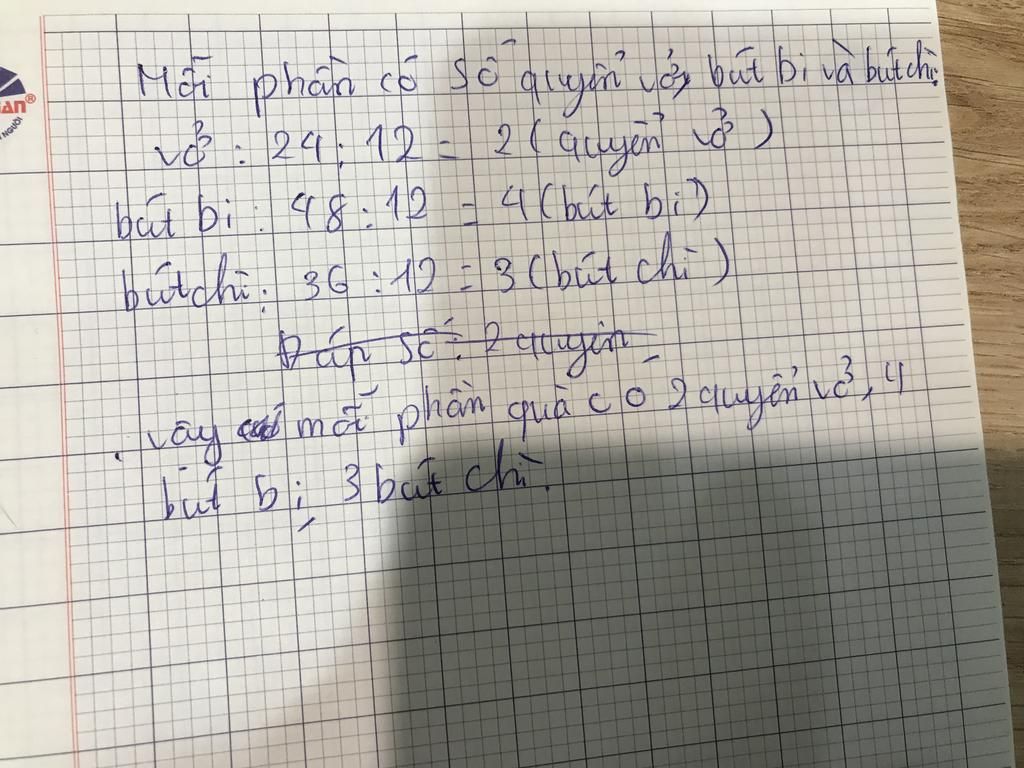 AN®
NGƯỜI
Mỗi phần có số quyển vở, bút bi và bút chì:
vở : 24 : 12 = 2 ( quyển vở )
bút bi : 48 : 12 = 4 (bút bi)
bút chì : 36 : 12 = 3 (bút chì)
Đáp số : 2 quyển
vậy mỗi phần quà có 2 quyển vở, 4
bút bi, 3 bút chì.